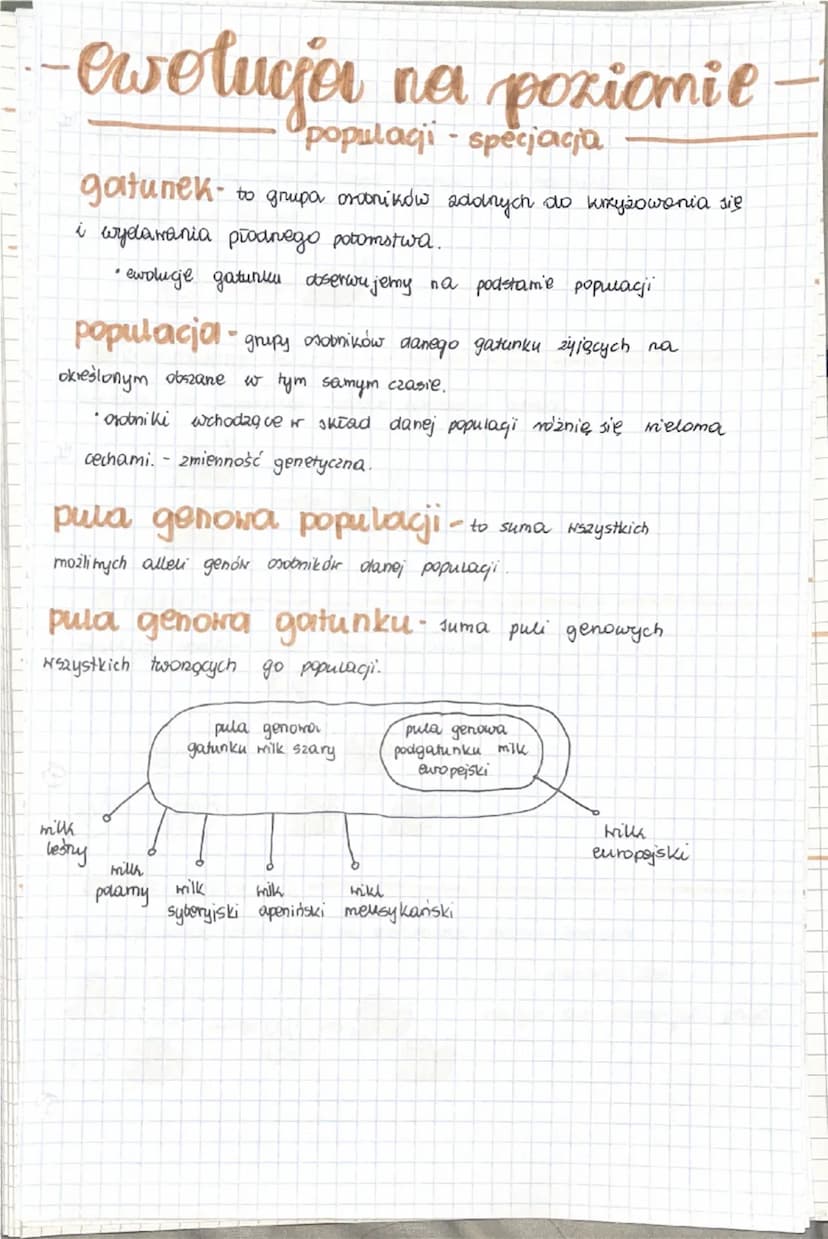 -ewolucja na poziomie-
populacji - specjacja
gatunek - to grupa osobników zdolnych do krzyżowania się
i wydawania płodnego potomstwa.
• ewolucje gatunku obserwujemy na podstawie populacji
populacja - grupy osobników danego gatunku żyjących na
określonym obszarze w tym samym czasie.
• osobniki wchodzące w skład danej populacji różnią się wieloma
cechami. - zmienność genetyczna.
pula genowa populacji - to suma wszystkich
możliwych alleli genów osobników danej populacji.
pula genowa gatunku - suma puli genowych
wszystkich tworzących go populacji.
pula genowa
gatunku wilk szary
pula genowa
podgatunku wilk
europejski
wilk
leśny
wilk
polarny
wilk
syberyjski
wilk
apeniński
wilk
meksykański
wilk
europejski